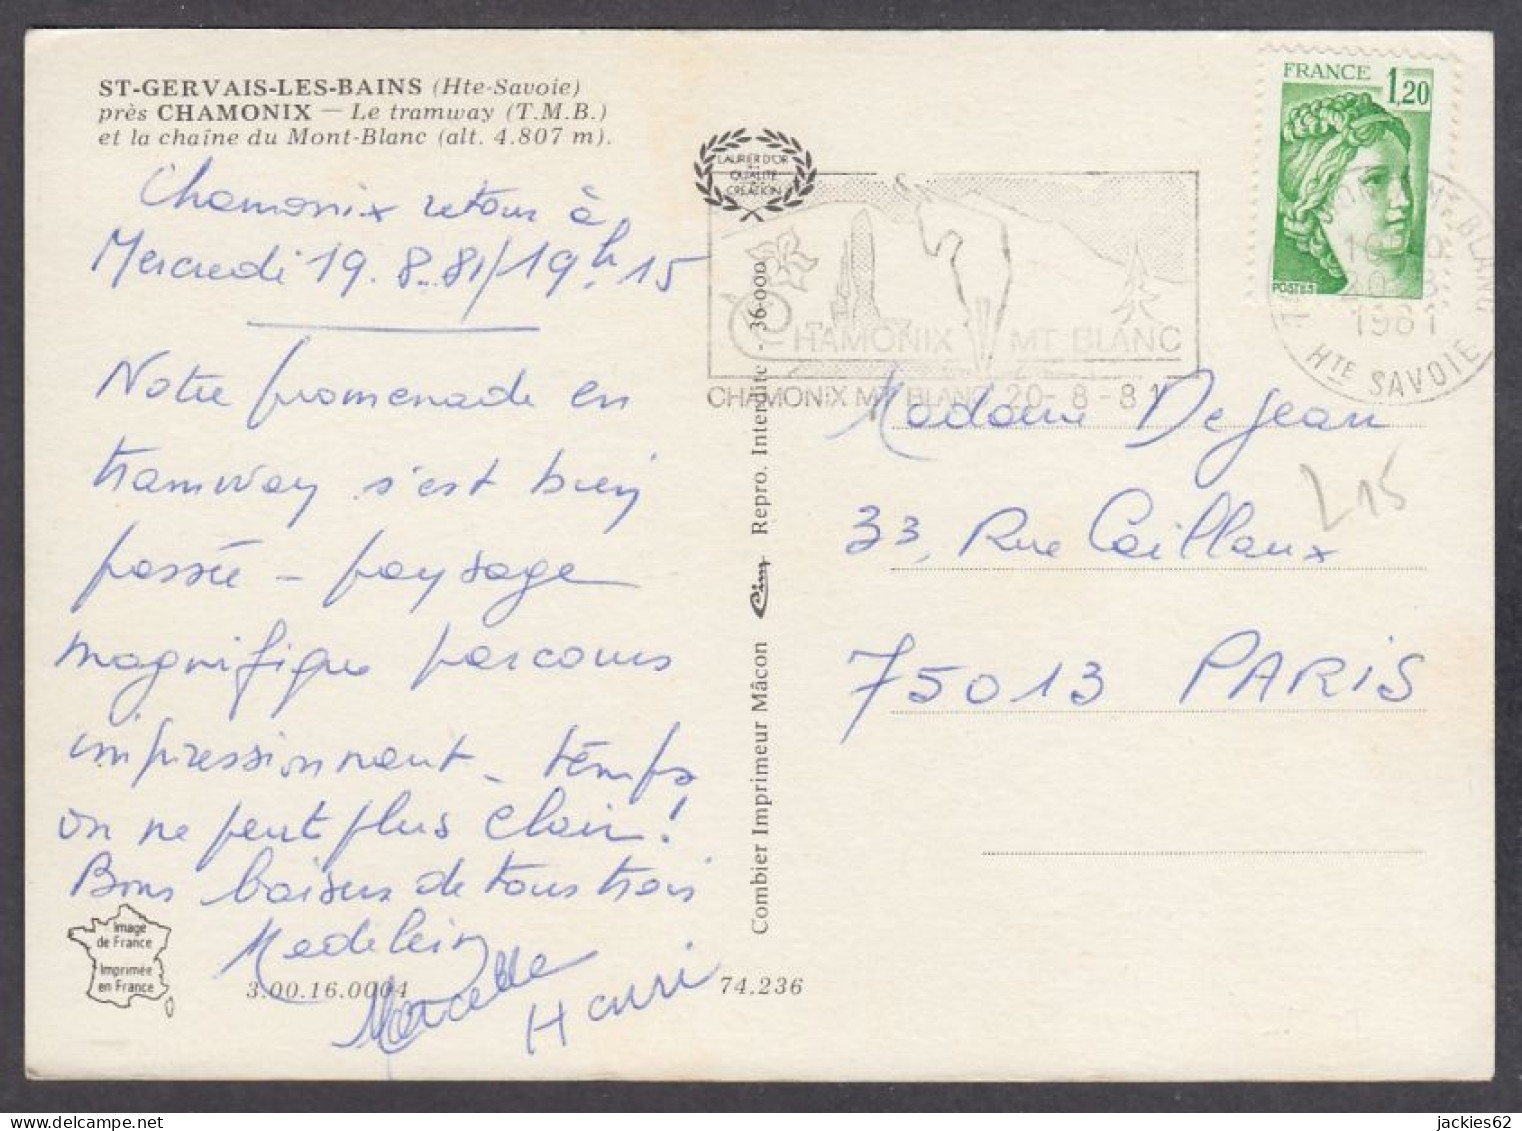 ST-GERVAIS-LES-BAINS (Hte-Savoie)
près CHAMONIX — Le tramway (T.M.B.)
et la chaîne du Mont-Blanc (alt. 4.807 m).
Chamonix retour à
Mercredi 19.8.81/19h15
Notre promenade en
tramway s'est bien
passée - paysage
magnifique parcours
impressionnant - temps
on ne peut plus clair !
Bons baisers de tous trois
Madeleine
Marcelle
Henri
Image
de France
Imprimée
en France
3.00.16.0004
74.236
Combier Imprimeur Mâcon Cim Repro. Interdite - 36-000
LAURIER D'OR
QUALITÉ
CRÉATION
CHAMONIX MT BLANC
CHAMONIX MT BLANC 20-8-81
FRANCE 1,20
POSTES
MT BLANC
1981
HTE SAVOIE
Madame DeJean
33, Rue Caillaux
75013 PARIS
L15
jackies62
https://www.delcampe.net